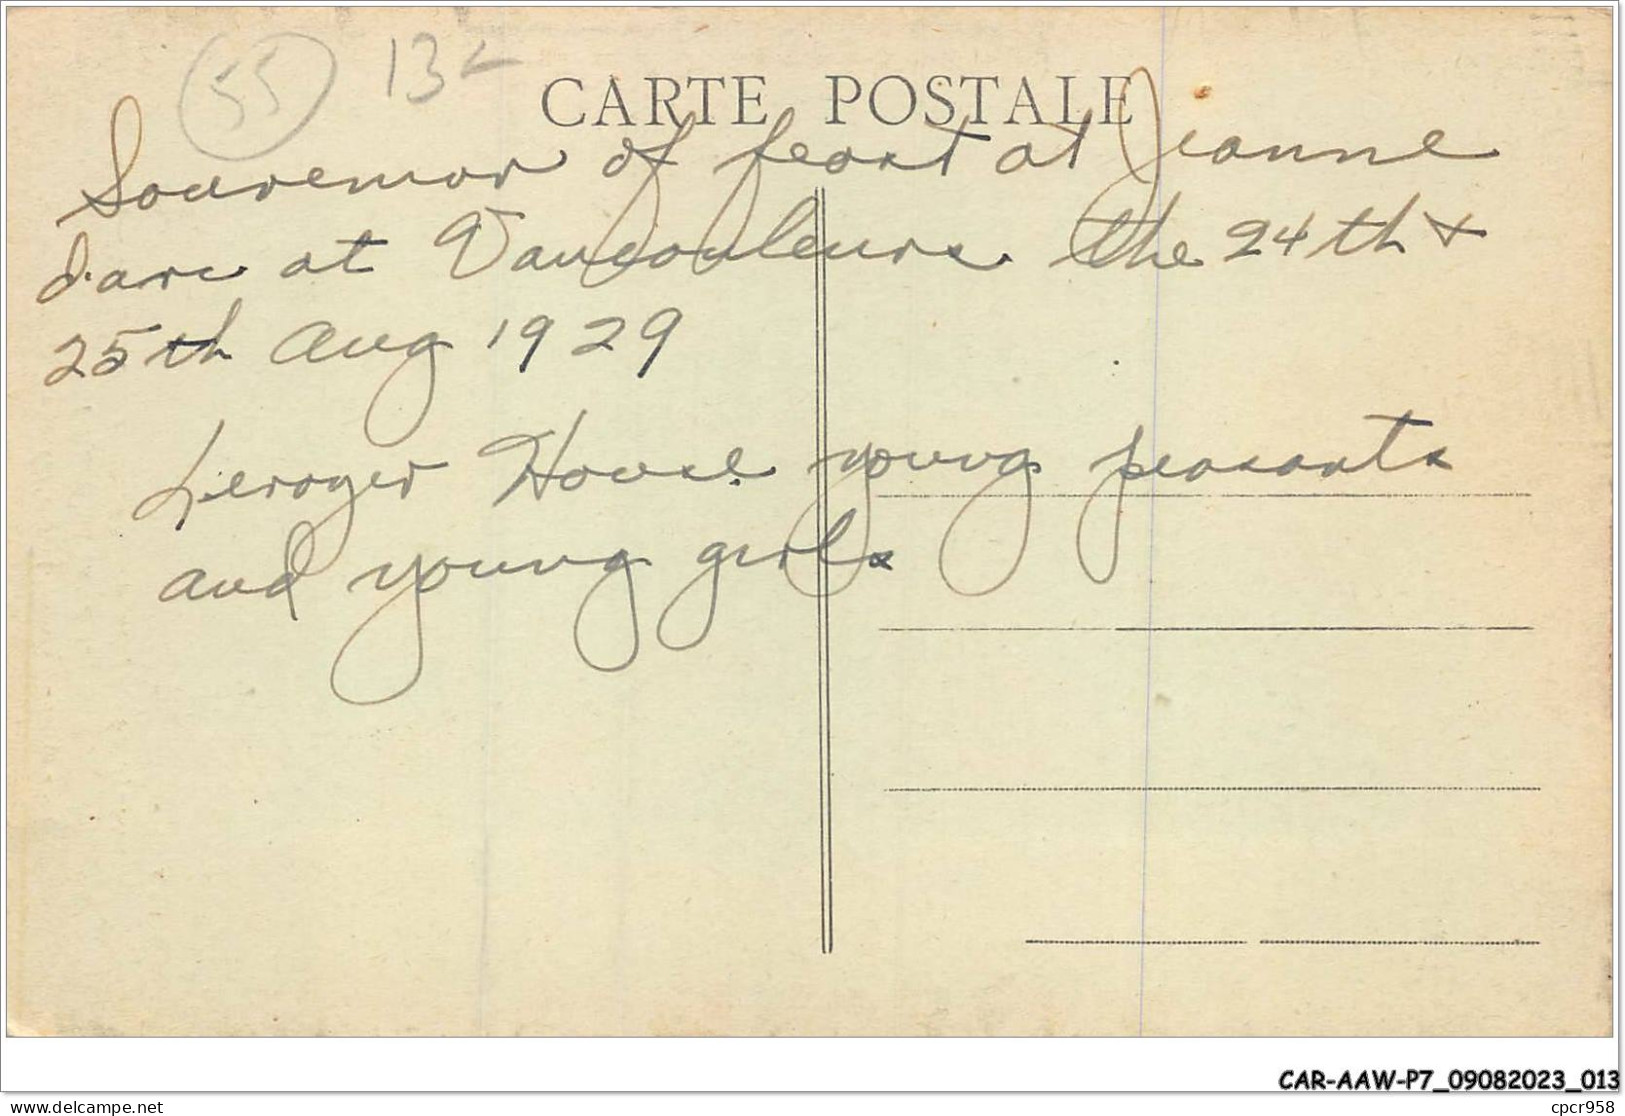 55 13
CARTE POSTALE
Souvenir of feast at Jeanne
d'arc at Vaucouleurs the 24th &
25th Aug 1929
Leroyer House young peasants
and young girls
CAR-AAW-P7_09082023_013
delcampe.net
cpcr958